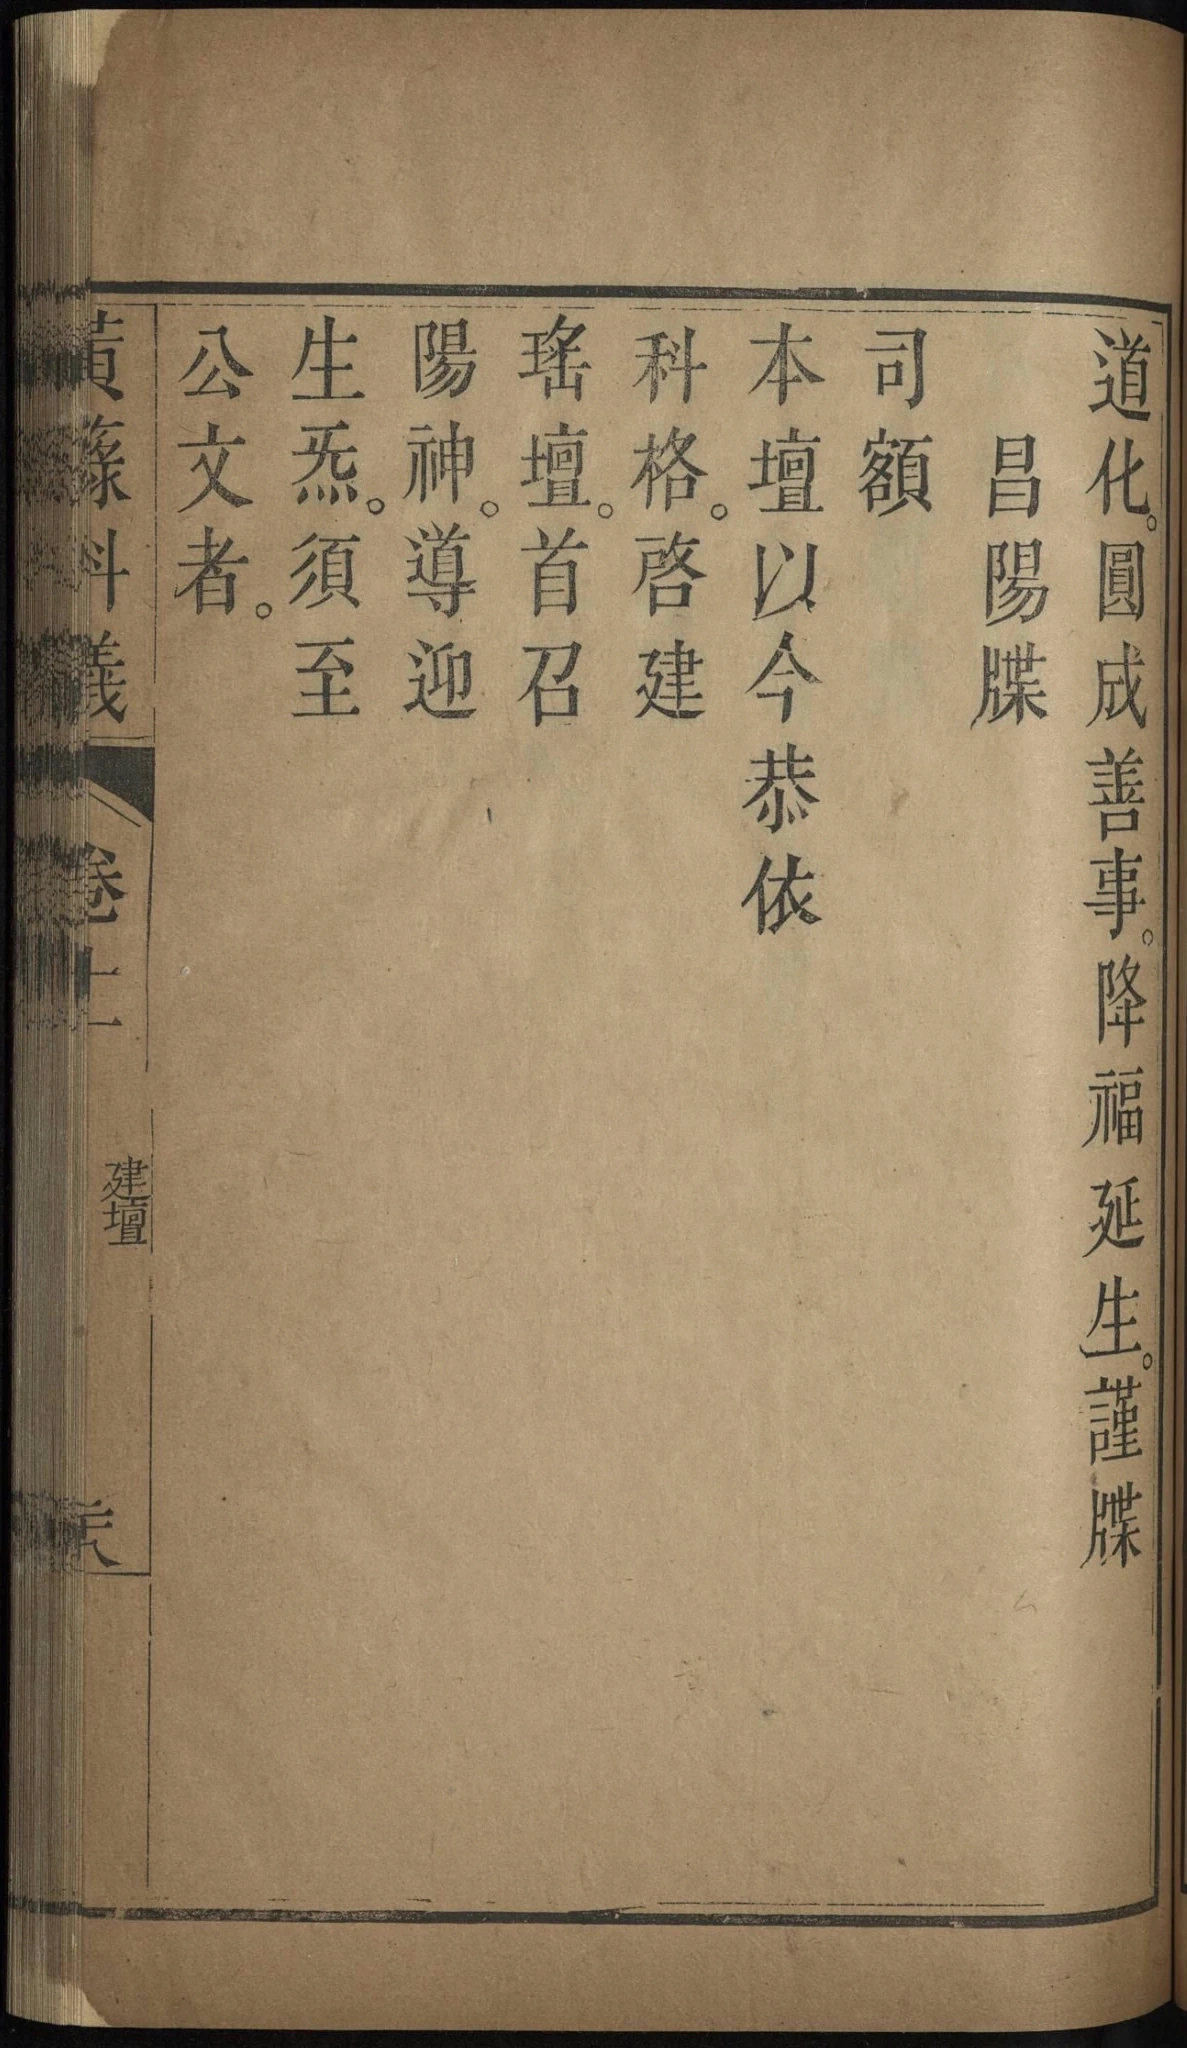 道化。圓成善事。降福延生。謹牒
昌陽牒
司額
本壇以今恭依
科格。啓建
瑤壇。首召
陽神。導迎
生炁。須至
公文者。
黃籙科儀 卷十一 建壇